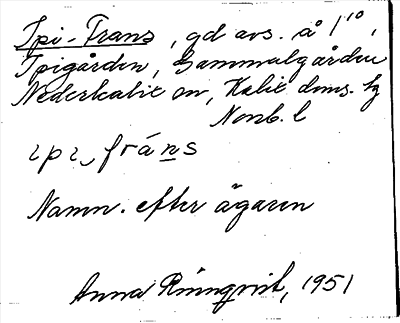 Spi-Frans, gd avs. å 1¹⁰,
Spigården, Gammalgården
Nederkalix sn, Kalix doms. hg
Nonb. l
spi‿fráns
Namn. efter ägaren
Anna Rönnqvist, 1951